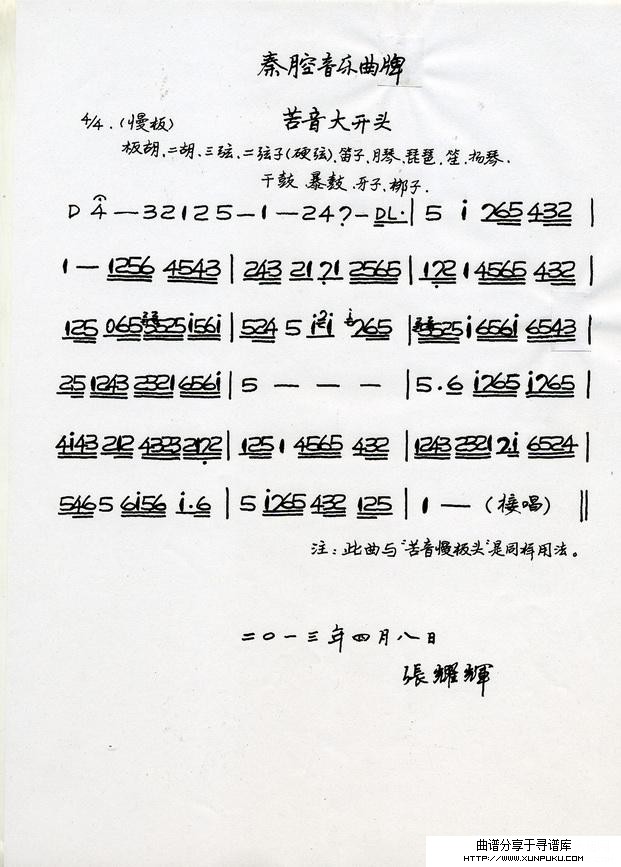 秦腔音乐曲牌
4/4.(慢板) 苦音大开头
板胡、二胡、三弦、二弦子(硬弦)、笛子、月琴、琵琶、笙、扬琴.
干鼓 暴鼓 牙子、梆子.
D 4 — 3 2 1 2 5 — 1 — 2 4 ? — DL· | 5 i 265 432 |
1 — 1256 4543 | 243 2171 2565 | 172 1 4565 432 |
125 065 525i56i | 524 5 i2i 265 | 525i656i 6543 |
25 1243 2321656i | 5 — — — | 5.6 i265 i765 |
4i43 212 4323 2172 | 125 1 4565 432 | 1243 2321 2i 6524 |
546 5 6i56 i.6 | 5 i265 432 125 | 1 — (接唱) ‖
注:此曲与“苦音慢板头”是同样用法。
二〇一三年四月八日
張耀輝
曲谱分享于寻谱库
HTTP://WWW.XUNPUKU.COM